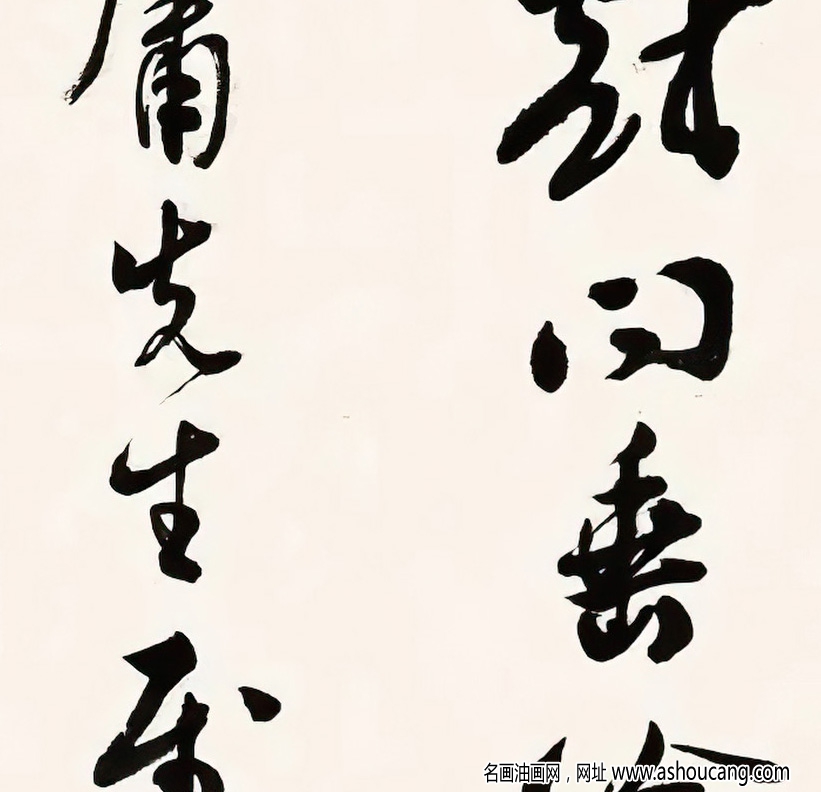 问垂
庸先生属
名画油画网，网址 www.ashoucang.com